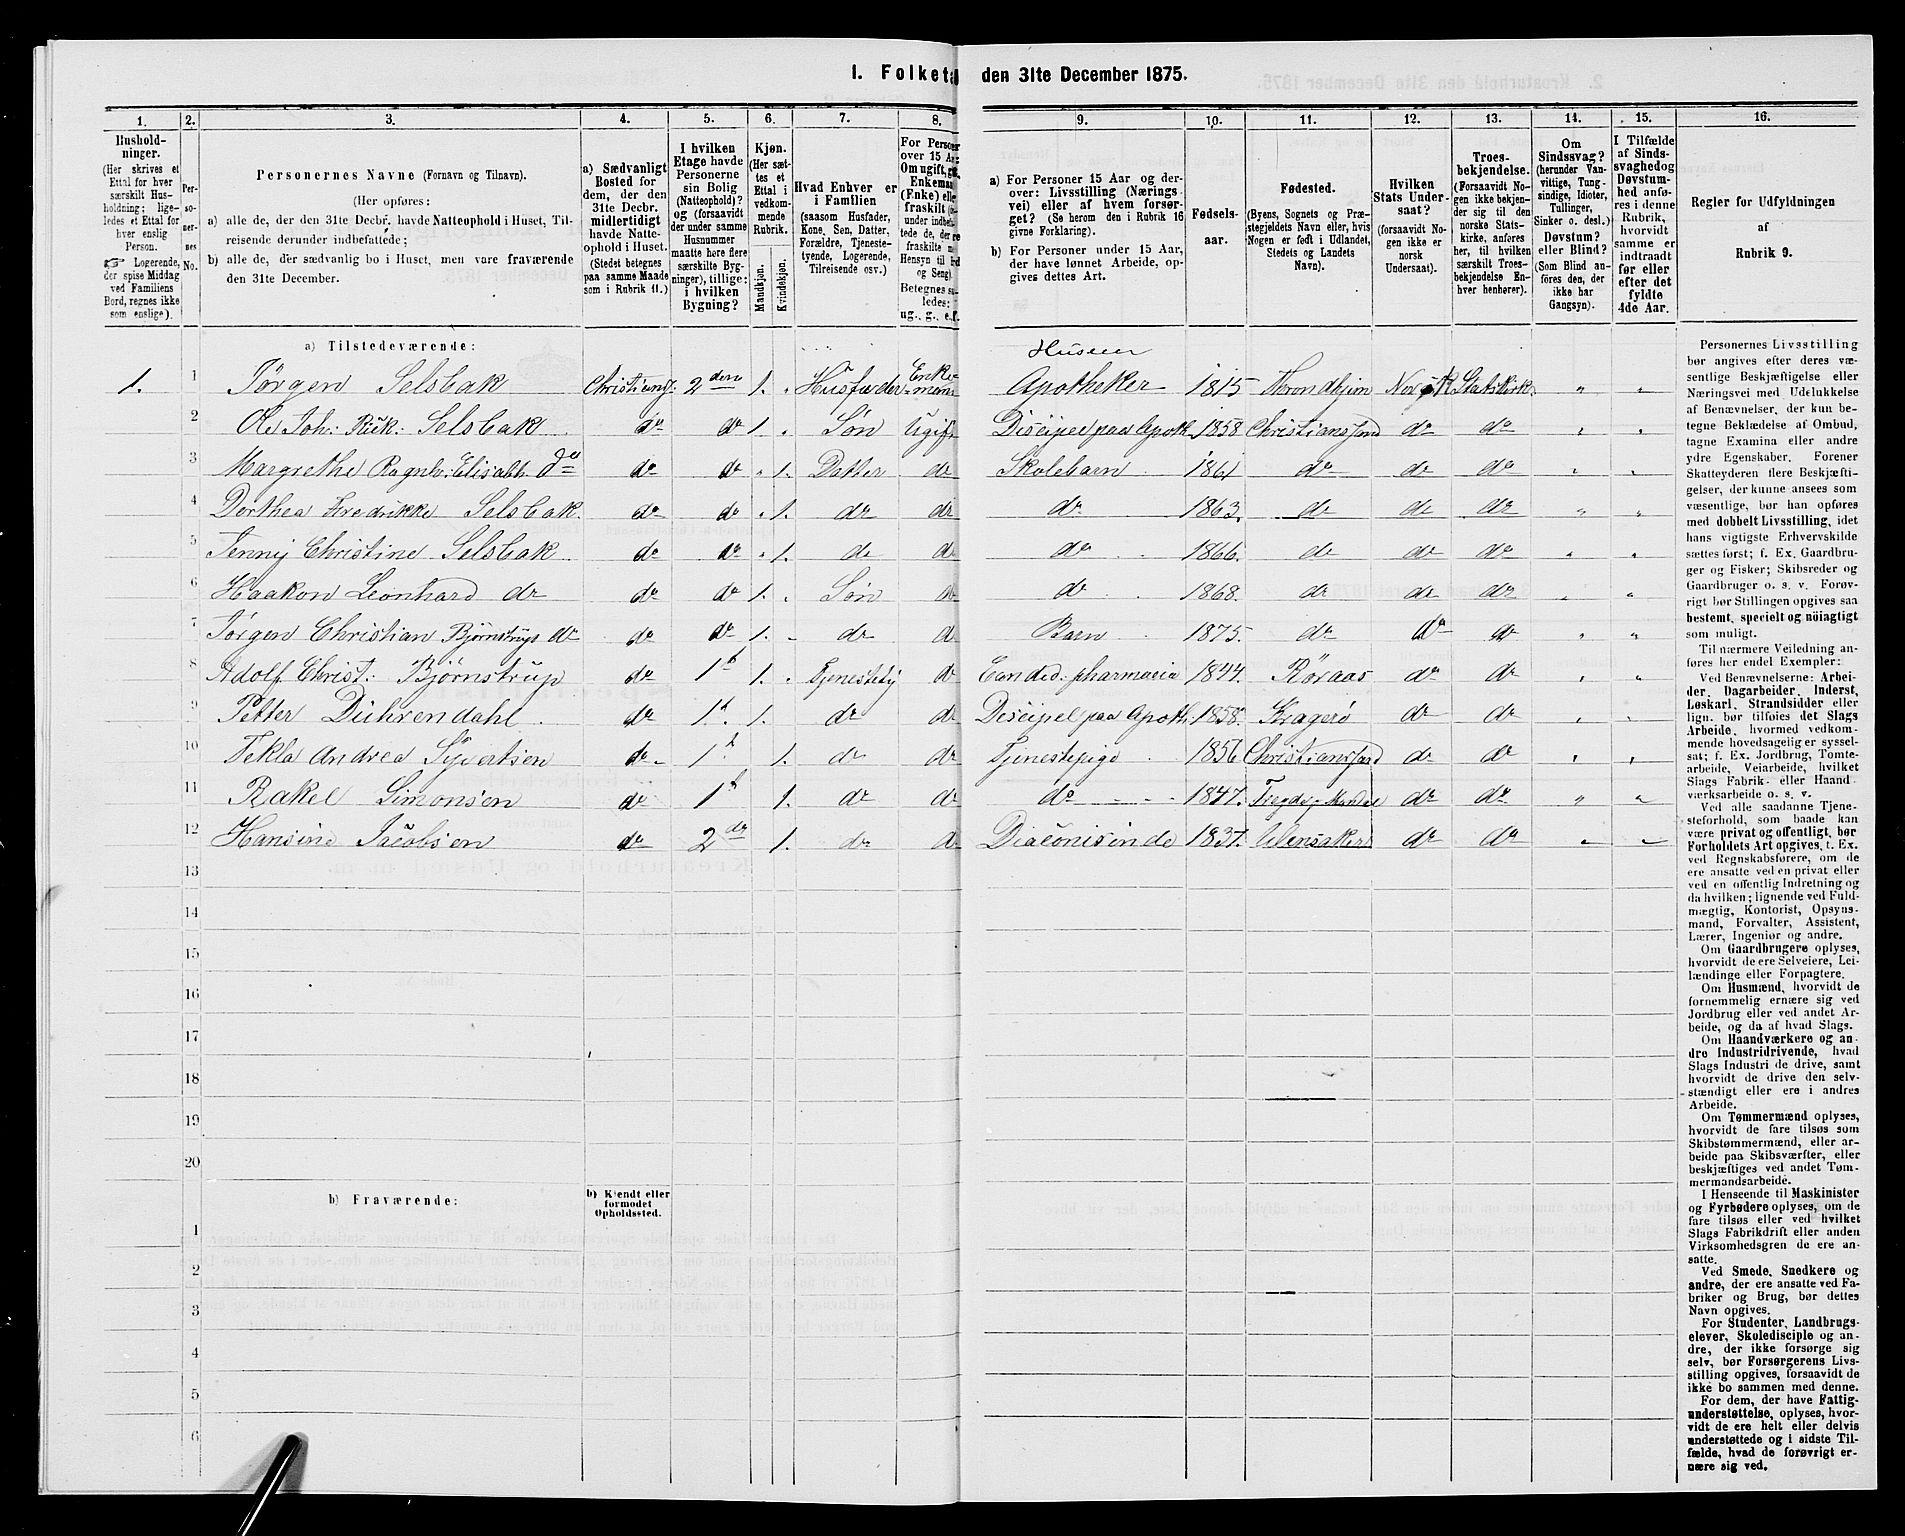 I. Folketæ
den 31te December 1875.
1. 2. 3. 4. 5. 6. 7. 8. 9. 10. 11. 12. 13. 14. 15. 16.
Husholdninger. (Her skrives et Ettal for hver særskilt Husholdning; ligeledes et Ettal for hver enslig Person. ☞ Logerende, der spise Middag ved Familiens Bord, regnes ikke som enslige).
Personernes No.
Personernes Navne (Fornavn og Tilnavn).
(Her opføres:
a) alle de, der den 31te Decbr. havde Natteophold i Huset, Tilreisende derunder indbefattede;
b) alle de, der sædvanlig bo i Huset, men vare fraværende den 31te December.
a) Sædvanligt Bosted for dem, der den 31te Decbr. midlertidigt havde Natteophold i Huset. (Stedet betegnes paa samme Maade som i Rubrik 11.)
I hvilken Etage havde Personerne sin Bolig (Natteophold)? og (forsaavidt der under samme Husnummer maatte høre flere særskilte Bygninger), tillige: i hvilken Bygning?
Kjøn. (Her sættes et Ettal i vedkommende Rubrik. Mandkjøn. Kvindekjøn.
Hvad Enhver er i Familien (saasom Husfader, Kone, Søn, Datter, Forældre, Tjenestetyende, Logerende, Tilreisende osv.)
For Personer over 15 Aar: Om ugift, gift, Enkemand (Enke) eller fraskilt
Betegnes saaledes: ug., g., e., f.
a) For Personer 15 Aar og derover: Livsstilling (Næringsvei) eller af hvem forsørget? (Se herom den i Rubrik 16 givne Forklaring).
b) For Personer under 15 Aar, der have lønnet Arbeide, opgives dettes Art.
Fødselsaar.
Fødested. (Byens, Sognets og Præstegjeldets Navn eller, hvis Nogen er født i Udlandet, Stedets og Landets Navn).
Hvilken Stats Undersaat? (forsaavidt Nogen ikke er norsk Undersaat).
Troesbekjendelse. (Forsaavidt Nogen ikke bekjender sig til den norske Statskirke, anføres her, til hvilken særskilt Troesbekjendelse Enhver henhører).
Om Sindssvag? (herunder Vanvittige, Tungsindige, Idioter, Tullinger, Sinker o. desl.) Døvstum? eller Blind? (Som Blind anføres den, der ikke har Gangsyn).
I Tilfælde af Sindssvaghed og Døvstumhed anføres i denne Rubrik, hvorvidt samme er indtraadt før eller efter det fyldte 4de Aar.
Regler for Udfyldningen af Rubrik 9.
a) Tilstedeværende:
Huseier
1. 1 Jørgen Selsbak Christiansf. 2den 1. Husfader Enkemand Apotheker 1815 Throndhjem Norsk Statskirk.
2 Ole Joh: Rick: Selsbak do do 1. Søn Ugift Discipel paa Apoth. 1858 Christianssand do do
3 Margrethe Ragnh: Elisabth do do do 1. Datter do Skolebarn 1861 do do do
4 Dorthea Fredrikke Selsbak do do 1. do do do 1863. do do do
5 Jenny Christine Selsbak do do 1. do do do 1866. do do do
6 Haakon Leonhard do do do 1. Søn do do 1868. do do do
7 Jørgen Christian Bjørnstrup do do do 1. do do Barn 1875. do do do
8 Adolf Christ: Bjørnstrup do 1st 1. Tjenestetj do Canded. pharmacia 1844. Røraas do do
9 Petter Dührendahl do 1st. 1. do do Discipel paa Apoth. 1858. Kragerø do do
10 Tekla Andrea Syvertsen do 1st 1. do do Tjenestepige 1856 Christianssand do do
11 Rakel Simonsen do 1st 1. do do do 1847. do do
12 Hansine Jacobsen do 2den 1. do do Diaconisinde 1837. Ulensaker do do
13
14
15
16
17
18
19
20
b) Fraværende:
b) Kjendt eller formodet Opholdssted.
1
2
3
4
5
6
Personernes Livsstilling
bør angives efter deres væ-
sentlige Beskjæftigelse eller
Næringsvei med Udelukkelse
af Benævnelser, der kun be-
tegne Beklædelse af Ombud,
tagne Examina eller andre
ydre Egenskaber. Forener
Skatteyderen flere Beskjæfti-
gelser, der kunne ansees som
væsentlige, bør han opføres
med dobbelt Livsstilling, idet
hans vigtigste Erhvervskilde
sættes først; f. Ex. Gaardbru-
ger og Fisker; Skibsreder og
Gaardbruger o. s. v. Forøv-
rigt bør Stillingen opgives saa
bestemt, specielt og nöiagtigt
som muligt.
Til nærmere Veiledning an-
føres her endel Exempler:
Ved Benævnelserne: Arbei-
der, Dagarbeider, Inderst,
Løskarl, Strandsidder eller
lign. bør tilføies det Slags
Arbeide, hvormed vedkom-
mende hovedsagelig er syssel-
sat; f. Ex. Jordbrug, Tomte-
arbeide, Veiarbeide, hvilket
Slags Fabrik- eller Haand-
værksarbeide o. s. v.
Ved alle saadanne Tjene-
steforhold, som baade kan
være privat og offentligt, bør
Forholdets Art opgives, f. Ex.
ved Regnskabsførere, om de
ere ansatte ved en privat eller
ved en offentlig Indretning og
da hvilken; lignende ved Fuld-
mægtig, Kontorist, Opsyns-
mand, Forvalter, Assistent,
Lærer, Ingeniør og andre.
Om Gaardbrugere oplyses,
hvorvidt de ere Selveiere, Lei-
lændinge eller Forpagtere.
Om Husmænd, hvorvidt de
fornemmelig ernære sig ved
Jordbrug eller ved andet Ar-
beide, og da af hvad Slags.
Om Haandværkere og an-
dre Industridrivende, hvad
Slags Industri de drive, samt
hvorvidt de drive den selv-
stændigt eller ere i andres
Arbeide.
Om Tømmermænd oplyses,
hvorvidt de fare tilsøs som
Skibstømmermænd, eller ar-
beide paa Skibsværfter, eller
beskjæftiges ved andet Tøm-
mermandsarbeide.
I Henseende til Maskinister
og Fyrbødere oplyses, om de
fare tilsøs eller ved hvilket
Slags Fabrikdrift eller anden
Virksomhedsgren de ere an-
satte.
Ved Smede, Snedkere og
andre, der ere ansatte ved Fa-
briker og Brug, bør dettes
Navn opgives.
For Studenter, Landbrugs-
elever, Skoledisciple og an-
dre, der ikke forsørge sig
selv, bør Forsørgerens Livs-
stilling opgives, forsaavidt de
ikke bo sammen med denne.
For dem, der have Fattig-
understøttelse, oplyses, hvor-
vidt de ere helt eller delvis
understøttede og i sidste Til-
fælde, hvad de forøvrigt er-
nære sig ved.